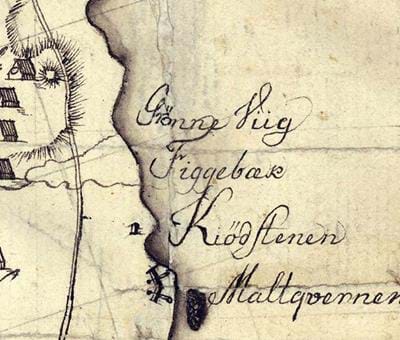 Grönne Viig
Figgebæk
Kiödstenen
Maltqvernen